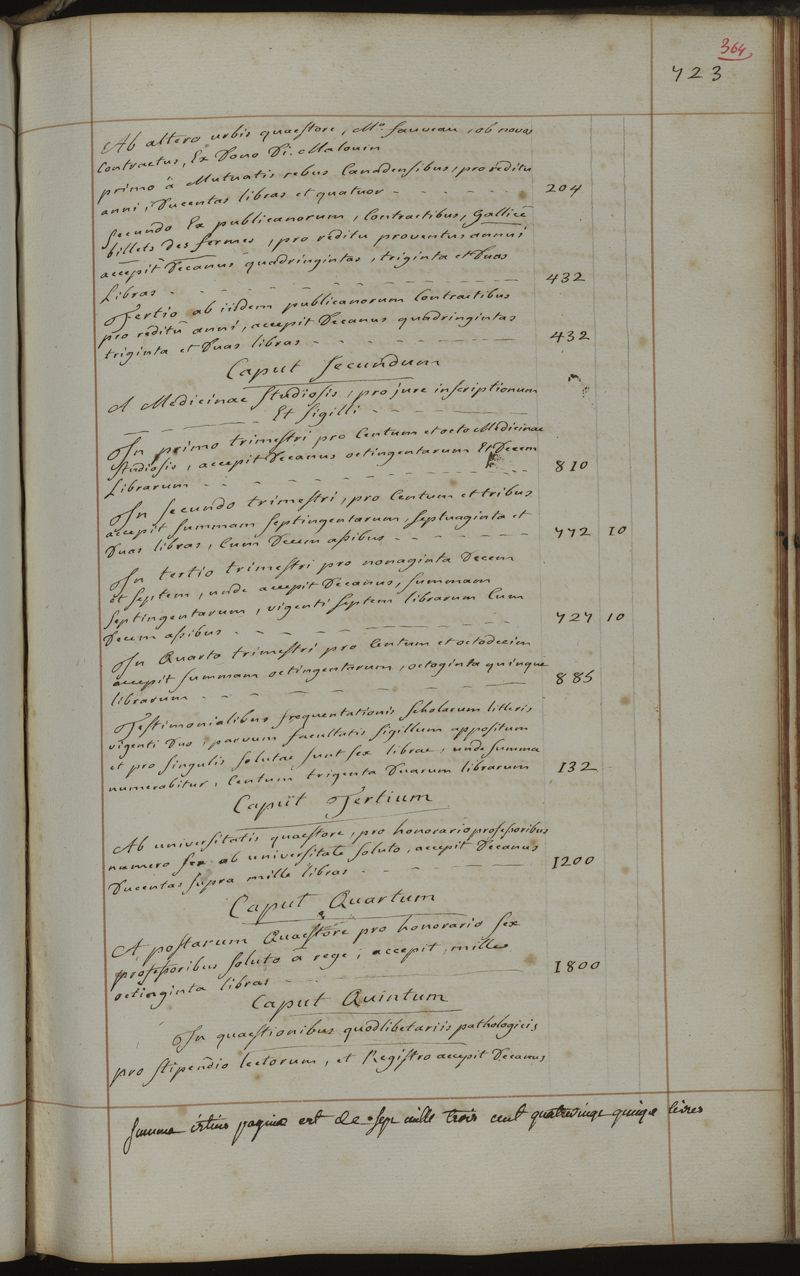 364
723
Ab altero urbis quaestore, Mo. Sauveau, ob novos
Contractus, Ex Dono Di. Malouin
primo à Mutuatis rebus Canadensibus, pro reditu
anni, Ducentas libras et quatuor - - - - - 204
Secundo Ex publicanorum, Contractibus, Gallicè
billets des fermes, pro reditu proventus annui
accepit Decanus quadringintas, triginta et Duas
Libras - - - - - 432
Tertio ab iisdem publicanorum Contractibus
pro reditu anni, accepit Decanus quadringintas
triginta et Duas libras - - - - - 432
Caput Secundum
A Medicinae Studiosis, pro jure inscriptionum
Et Sigilli - - - - -
In primo trimestri pro Centum et octo Medicinae
Studiosis, accepit Decanus octingentarum Et Decem
Librarum - - - - - 810
In Secundo trimestri, pro Centum et tribus
accepit Summam Septingentarum, Septuaginta et
Duas libras, Cum Decem assibus - - - - - 772 10
In tertio trimestri pro nonaginta Decem
et Septem, unde accepit Decanus, Summam
Septingentarum, vigenti Septem librarum Cum
Decem assibus - - - - - 727 10
In Quarto trimestri pro Centum et octodecim
accepit Summam octingentarum, octoginta quinque
librarum - - - - - 885
Testimonialibus frequentationis Scholarum litteris
vigenti Duo, parvum facultatis Sigillum appositum
et pro Singulis Solutae Sunt Sex librae, unde Summa
numerabitur, Centum trigenta Duarum librarum 132
Caput Tertium
Ab universitatis quaestore, pro honorario professoribus
numero Sex ab universitate Soluto, accepit Decanus
Ducentas Supra mille libras - - - - - 1200
Caput Quartum
A postarum Quaestore pro honorario Sex
professoribus Soluto à rege, accepit, mille
octinginta libras - - - - - 1800
Caput Quintum
In quaestionibus quodlibetariis pathologicis
pro Stipendio lectorum, et Registro accepit Decanus
Summa istius paginae est de Sep mille trois cent quatrevinge quinze livres